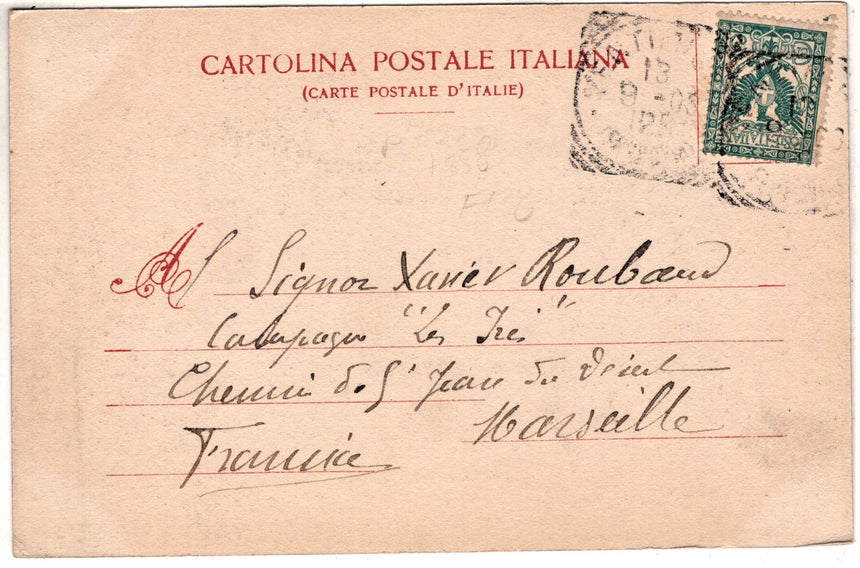 CARTOLINA POSTALE ITALIANA
(CARTE POSTALE D'ITALIE)
Al Signor Xavier Roubaud
Campagne "Les Iris"
Chemin de St Jean du Désert
Marseille
Francia